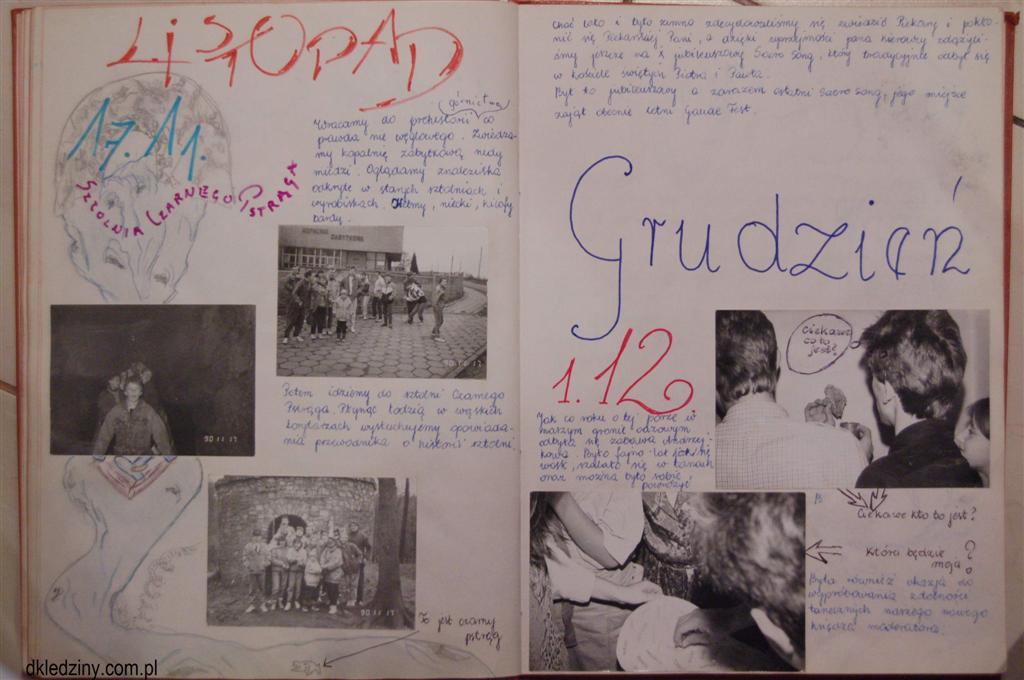 LISTOPAD
17.11.
SZTOLNIA CZARNEGO PSTRĄGA
górnictwa
Wracamy do prehistorii co
prawda nie węglowego. Zwiedza-
my kopalnię zabytkową rudy
miedzi. Oglądamy znaleziska
odkryte w starych sztolniach i
wyrobiskach. Hełmy, niecki, kilofy
KOPALNIA ZABYTKOWA
90 11 17
Potem idziemy do sztolni Czarnego
Pstrąga. Płynąc łodzią w wąskich
korytarzach wysłuchujemy opowiada-
nia przewodnika o historii sztolni.
90 11 17
90 11 17
To jest czarny
pstrąg
dkledziny.com.pl
choć lało i było zimno zdecydowaliśmy się zwiedzić Piekary i pokło-
nić się Piekarskiej Pani, a dzięki uprzejmości pana kierowcy zdążyli-
śmy jeszcze na X jubileuszowy Sacro Song, który tradycyjnie odbył się
w kościele świętych Piotra i Pawła.
Był to jubileuszowy a zarazem ostatni Sacro Song, jego miejsce
zajął obecnie letni Gaude Fest.
Grudzień
1.12.
Ciekawe
co to
jest?
Jak co roku o tej porze w
naszym gronie oazowym
odbyła się zabawa Andrzej-
kowa. Było fajno - lał się
wosk, szalało się w tańcach
oraz można było sobie
powróżyć
Ciekawe kto to jest?
Która będzie
moja?
Była również okazja do
wypróbowania zdolności
tanecznych naszego nowego
księdza moderatora.